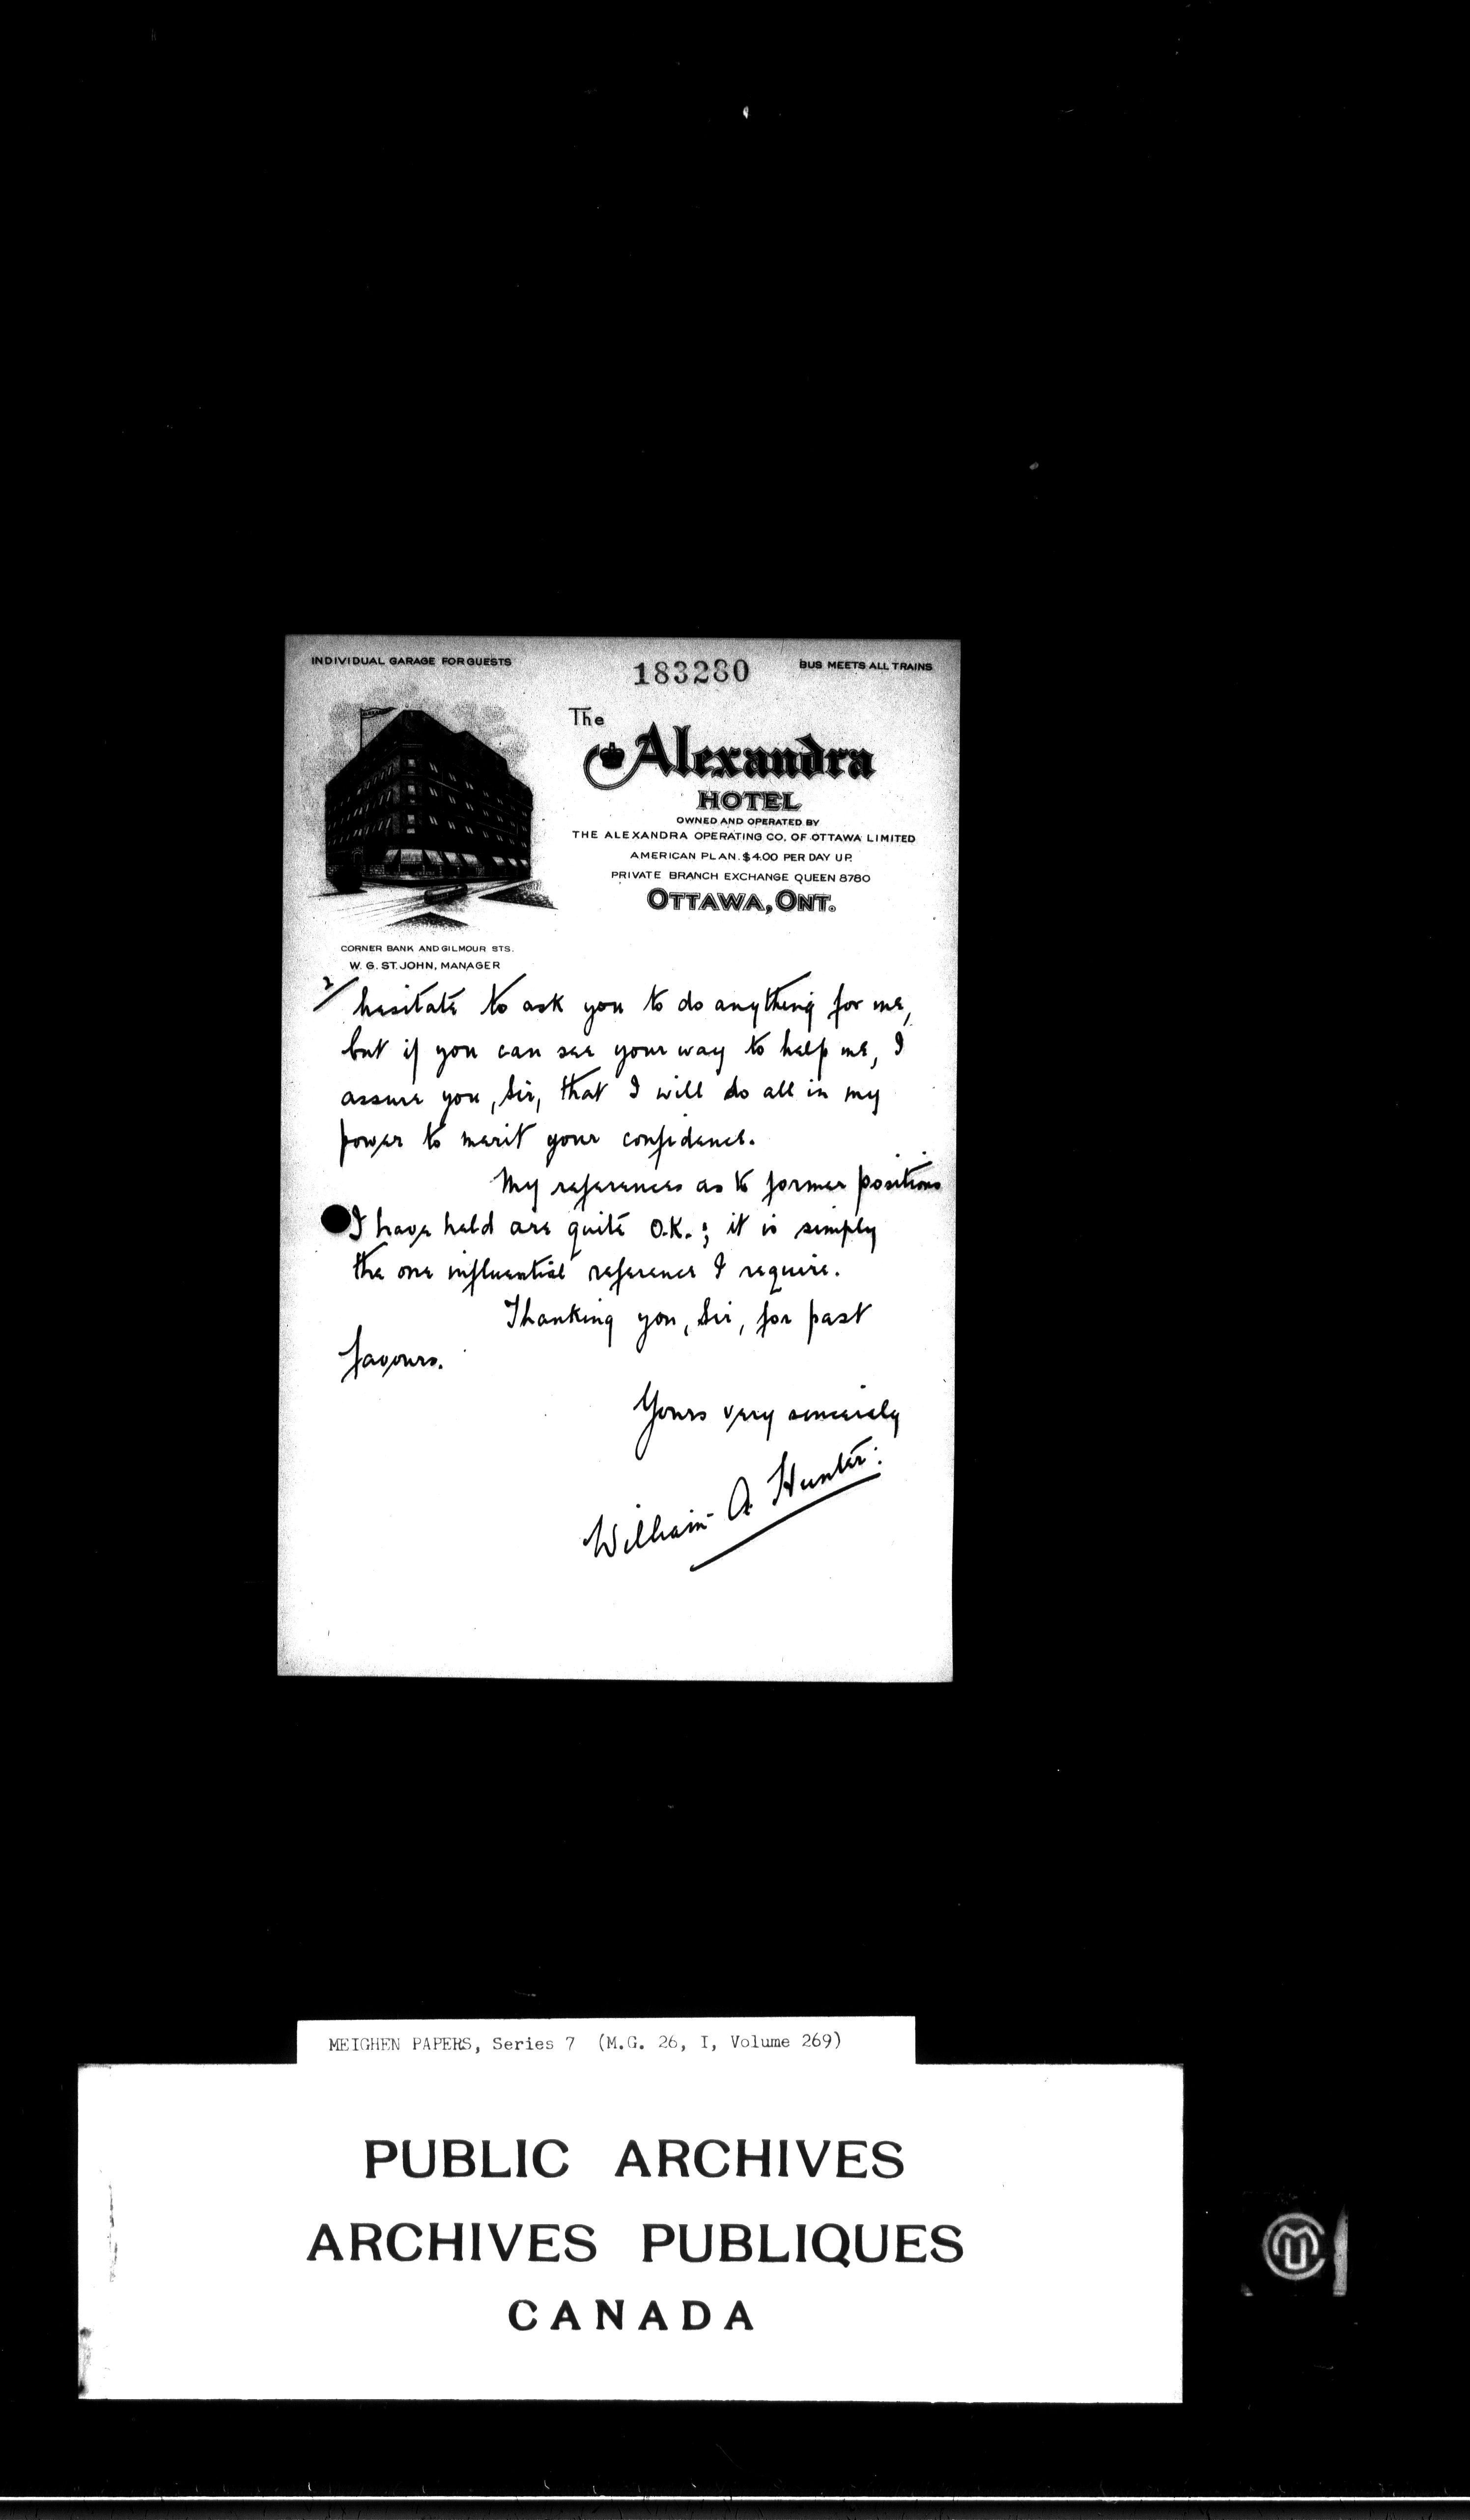 INDIVIDUAL GARAGE FOR GUESTS
183280
BUS MEETS ALL TRAINS
The
Alexandra
HOTEL
OWNED AND OPERATED BY
THE ALEXANDRA OPERATING CO. OF OTTAWA LIMITED
AMERICAN PLAN. $4.00 PER DAY UP.
PRIVATE BRANCH EXCHANGE QUEEN 8780
OTTAWA, ONT.
CORNER BANK AND GILMOUR STS.
W. G. ST. JOHN, MANAGER
2/ hesitate to ask you to do anything for me,
but if you can see your way to help me, I
assure you, Sir, that I will do all in my
power to merit your confidence.
My references as to former positions
I have held are quite O.K.; it is simply
the one influential reference I require.
Thanking you, Sir, for past
favours.
Yours very sincerely
William A. Hunter.
MEIGHEN PAPERS, Series 7 (M.G. 26, I, Volume 269)
PUBLIC ARCHIVES
ARCHIVES PUBLIQUES
CANADA